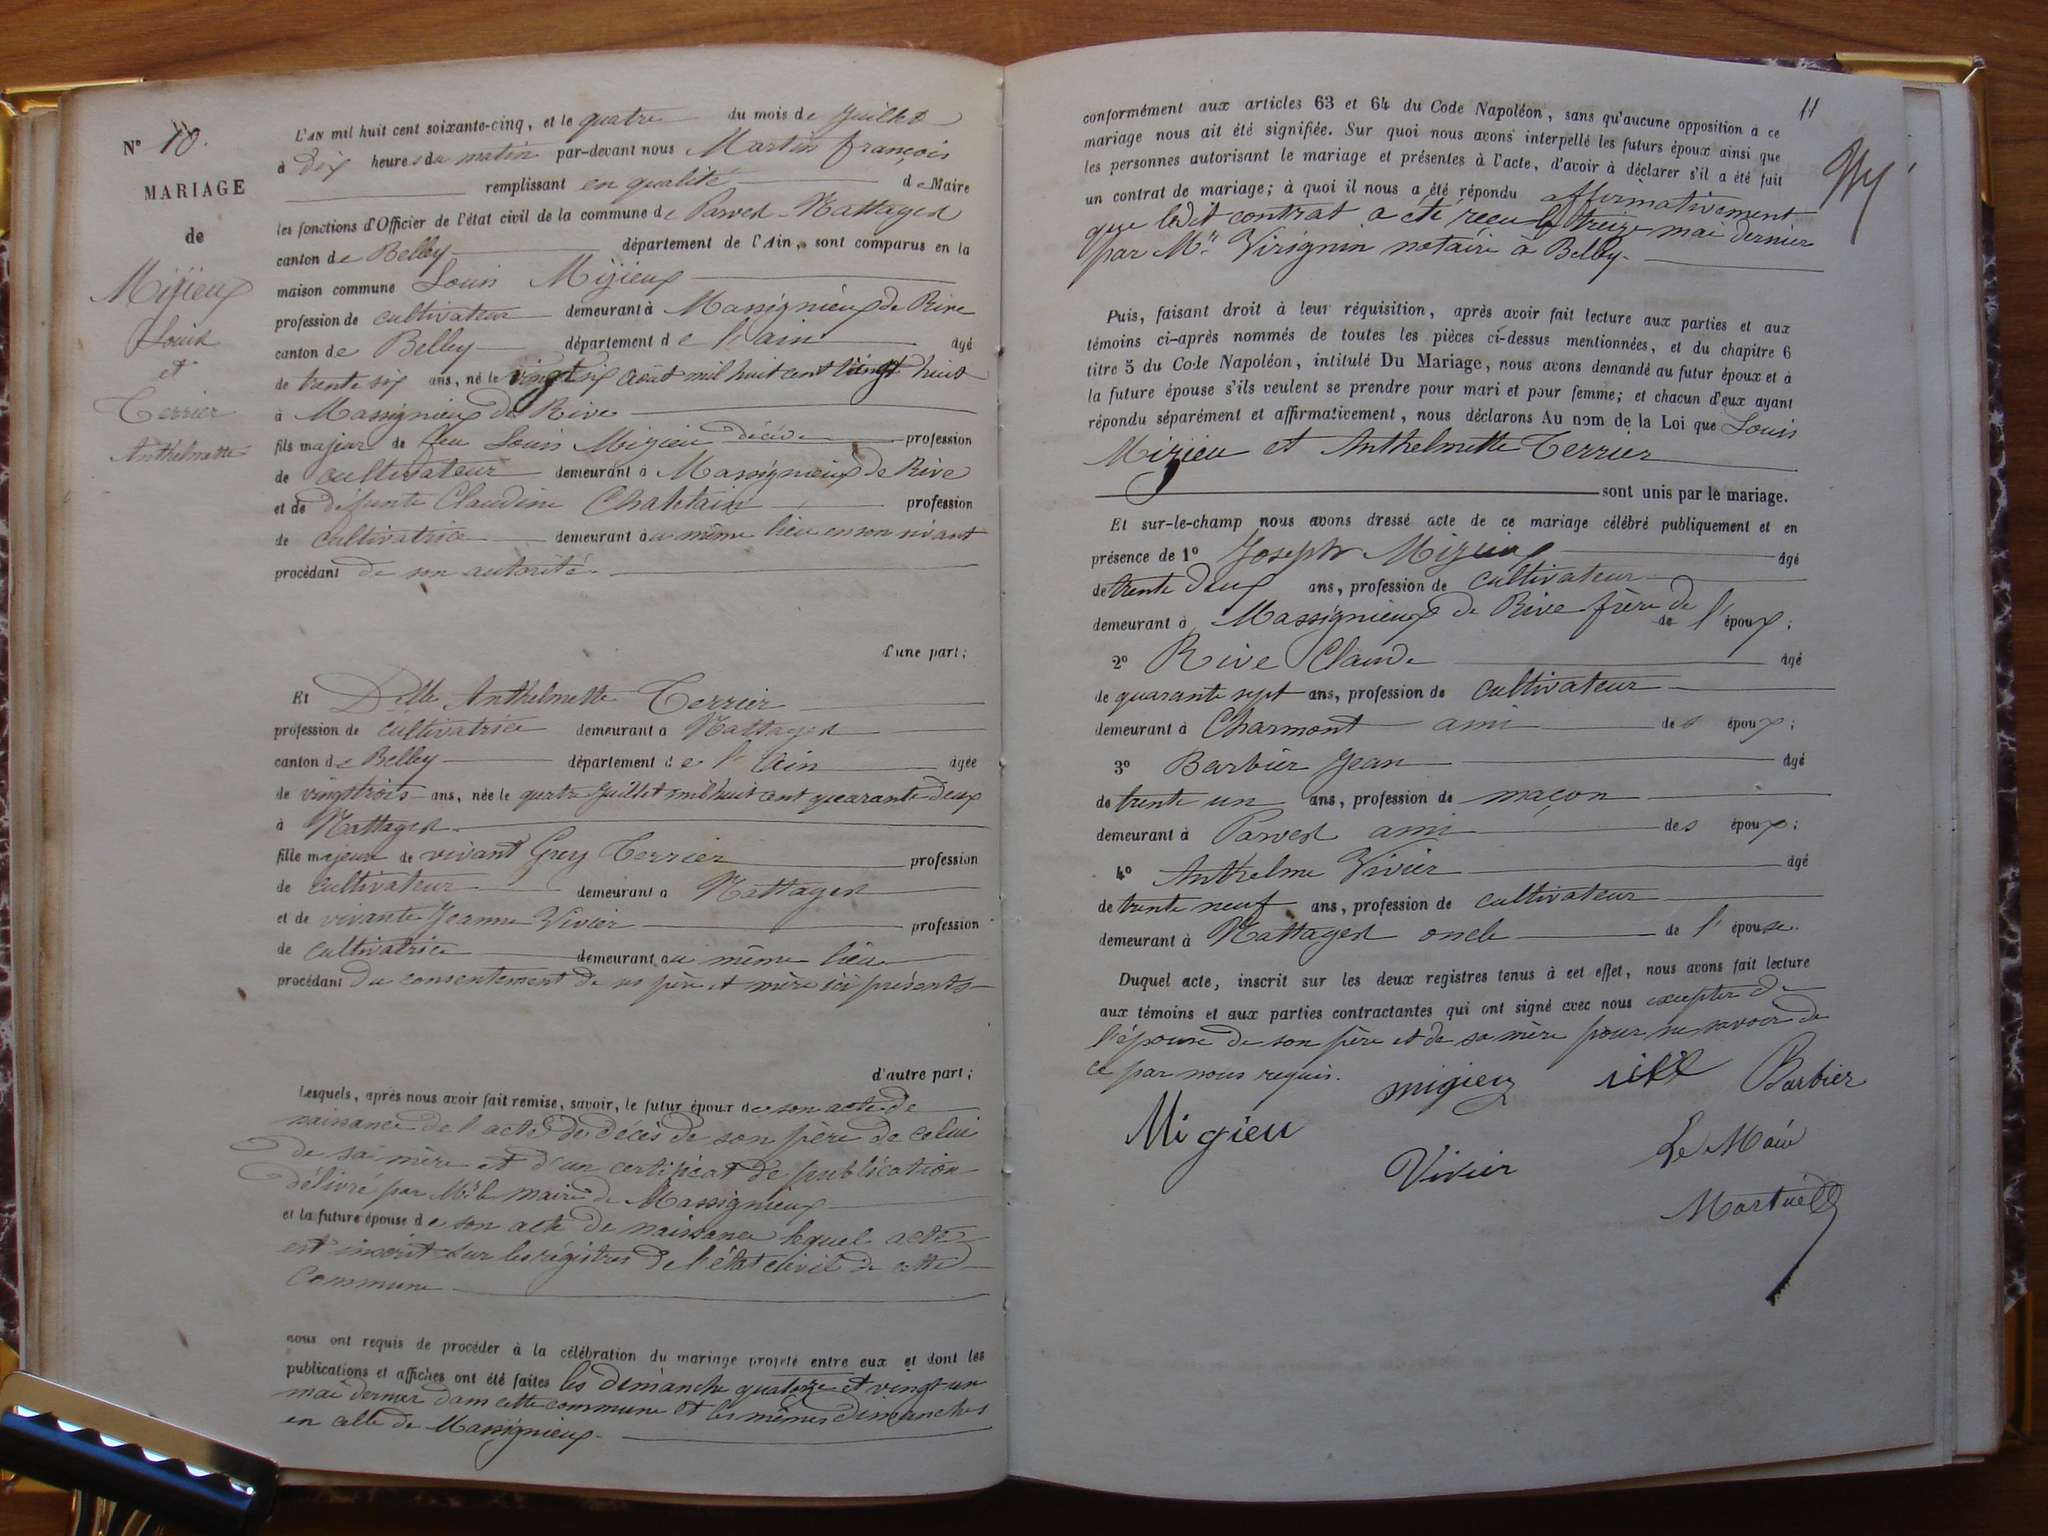 N° 10.
MARIAGE
de
Mizieux
Louis
et
Terrier
Anthelmette
L'AN mil huit cent soixante-cinq, et le quatre du mois de Juillet
à dix heures du matin par-devant nous Martin françois
remplissant en qualité de Maire
les fonctions d'Officier de l'état civil de la commune de Parves-Nattages
canton de Belley département de l'Ain, sont comparus en la
maison commune Louis Mizieux
profession de cultivateur demeurant à Massignieux de Rive
canton de Belley département de l'ain âgé
de trente six ans, né le vingt six août mil huit cent vingt huit
à Massignieux de Rive
fils majeur de feu Louis Mizieu décédé profession
de cultivateur demeurant à Massignieux de Rive
et de défunte Claudine Chatelain profession
de cultivatrice demeurant au même lieu en son vivant
procédant de son autorité
d'une part;
Et Delle Anthelmette Terrier
profession de cultivatrice demeurant à Nattages
canton de Belley département de l'ain âgée
de vingt trois ans, née le quatre Juillet mil huit cent quarante deux
à Nattages
fille majeure de vivant Grey Terrier profession
de cultivateur demeurant à Nattages
et de vivante Jeanne Vivier profession
de cultivatrice demeurant au même lieu
procédant du consentement de ses père et mère ici présents
d'autre part;
Lesquels, après nous avoir fait remise, savoir, le futur époux de son acte de
naissance de l'acte de décès de son père de celui
de sa mère et d'un certificat de publication
délivré par Mr le maire de Massignieux
et la future épouse de son acte de naissance lequel acte
est inscrit sur les régistres de l'état civil de cette
commune
nous ont requis de procéder à la célébration du mariage projeté entre eux et dont les
publications et affiches ont été faites les dimanche quatorze et vingt un
mai dernier dans cette commune et les mêmes dimanches
en celle de Massignieux.
11
conformément aux articles 63 et 64 du Code Napoléon, sans qu'aucune opposition à ce
mariage nous ait été signifiée. Sur quoi nous avons interpellé les futurs époux ainsi que
les personnes autorisant le mariage et présentes à l'acte, d'avoir à déclarer s'il a été fait
un contrat de mariage; à quoi il nous a été répondu affirmativement
que ledit contrat a été reçu le treize mai dernier
par Mr Virignin notaire à Belley.
Puis, faisant droit à leur réquisition, après avoir fait lecture aux parties et aux
témoins ci-après nommés de toutes les pièces ci-dessus mentionnées, et du chapitre 6
titre 5 du Code Napoléon, intitulé Du Mariage, nous avons demandé au futur époux et à
la future épouse s'ils veulent se prendre pour mari et pour femme; et chacun d'eux ayant
répondu séparément et affirmativement, nous déclarons Au nom de la Loi que Louis
Mizieu et Anthelmette Terrier
sont unis par le mariage.
Et sur-le-champ nous avons dressé acte de ce mariage célébré publiquement et en
présence de 1° Joseph Mizieux âgé
de trente deux ans, profession de cultivateur
demeurant à Massignieux de Rive frère de
de l'époux;
2° Rive Claude âgé
de quarante sept ans, profession de cultivateur
demeurant à Charmont ami des époux;
3° Barbier Jean âgé
de trente un ans, profession de maçon
demeurant à Parves ami des époux;
4° Anthelme Vivier âgé
de trente neuf ans, profession de cultivateur
demeurant à Nattages oncle de l'épouse.
Duquel acte, inscrit sur les deux registres tenus à cet effet, nous avons fait lecture
aux témoins et aux parties contractantes qui ont signé avec nous excepter de
l'épouse de son père et de sa mère pour ne savoir de
ce par nous requis.
migieux Barbier
Migieu
Vivier Le Maire
Martin